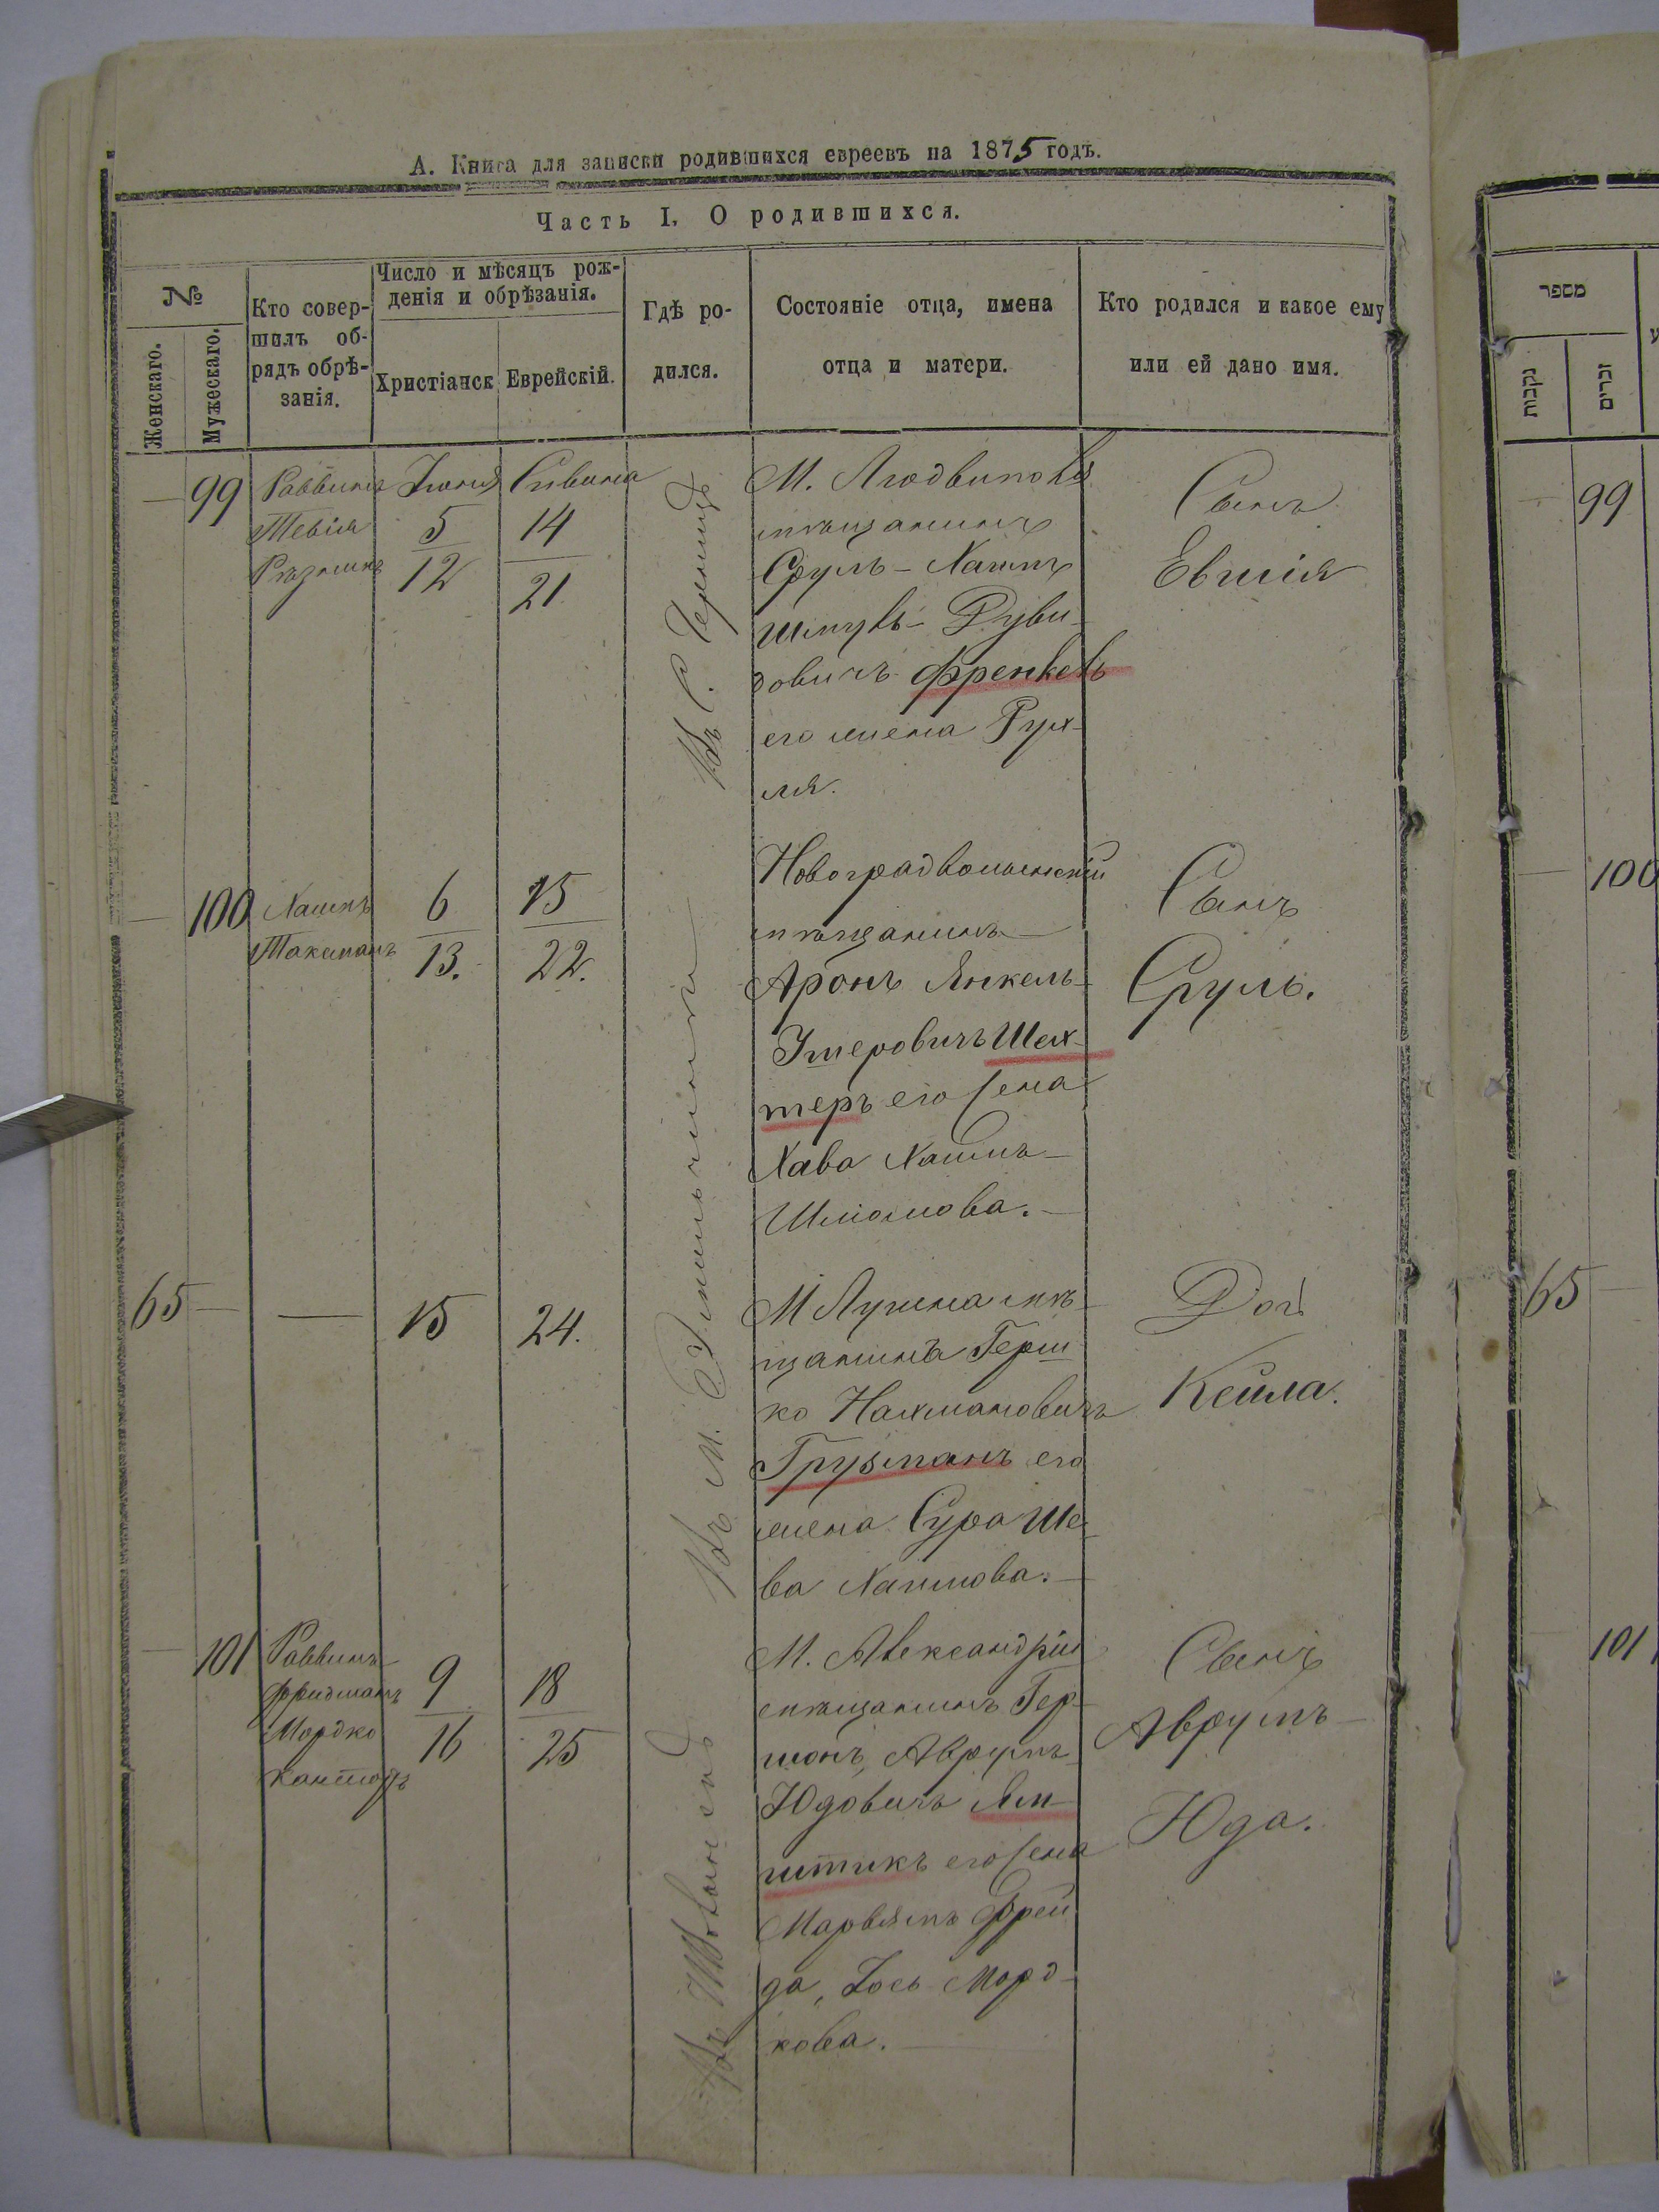 А. Книга для записки родившихся евреевъ на 1875 годъ.
Часть I. О родившихся.
№
Женскаго.
Мужескаго.
Кто совер-
шилъ об-
рядъ обрѣ-
занія.
Число и мѣсяцъ рож-
денія и обрѣзанія.
Христіанск
Еврейскій.
Гдѣ ро-
дился.
Состояніе отца, имена
отца и матери.
Кто родился и какое ему
или ей дано имя.
— 99
Раввинъ
Тевія
Іюня
5
12
Сивана
14
21
Въ С.
М.
мѣщанинъ
Сруль - Хаимъ
Шмуль - Дуви-
довичъ Френкель
его жена Рух-
ля.
Сынъ
Евшія
— 100
Хаимъ
Таксманъ
6
13.
15
22.
Въ М.
Новоградволынскій
мѣщанинъ
Аронъ Янкель-
Итеровичъ Шех-
теръ его жена
Хава Хаимъ-
Шліомова.
Сынъ
Сруль.
65 —
—
15
24.
М Лучина мѣ-
щанинъ Герш
ко Нахмановичъ
Грузманъ его
жена Сура Ше-
ва Хаимова.
Дочь
Кейла.
— 101
Раввинъ
Фридманъ
Мордко
Канторъ
9
16
18
25
Въ
М. Александрія
мѣщанинъ Гер-
шонъ, Аврумъ
Юдовичъ Ям-
питикъ его жена
Марьямъ Фрей
да, Іось Морд-
кова.
Сынъ
Аврумъ
Юда.
מספר
נקבות
זכרים
— 99
— 100
65 —
101